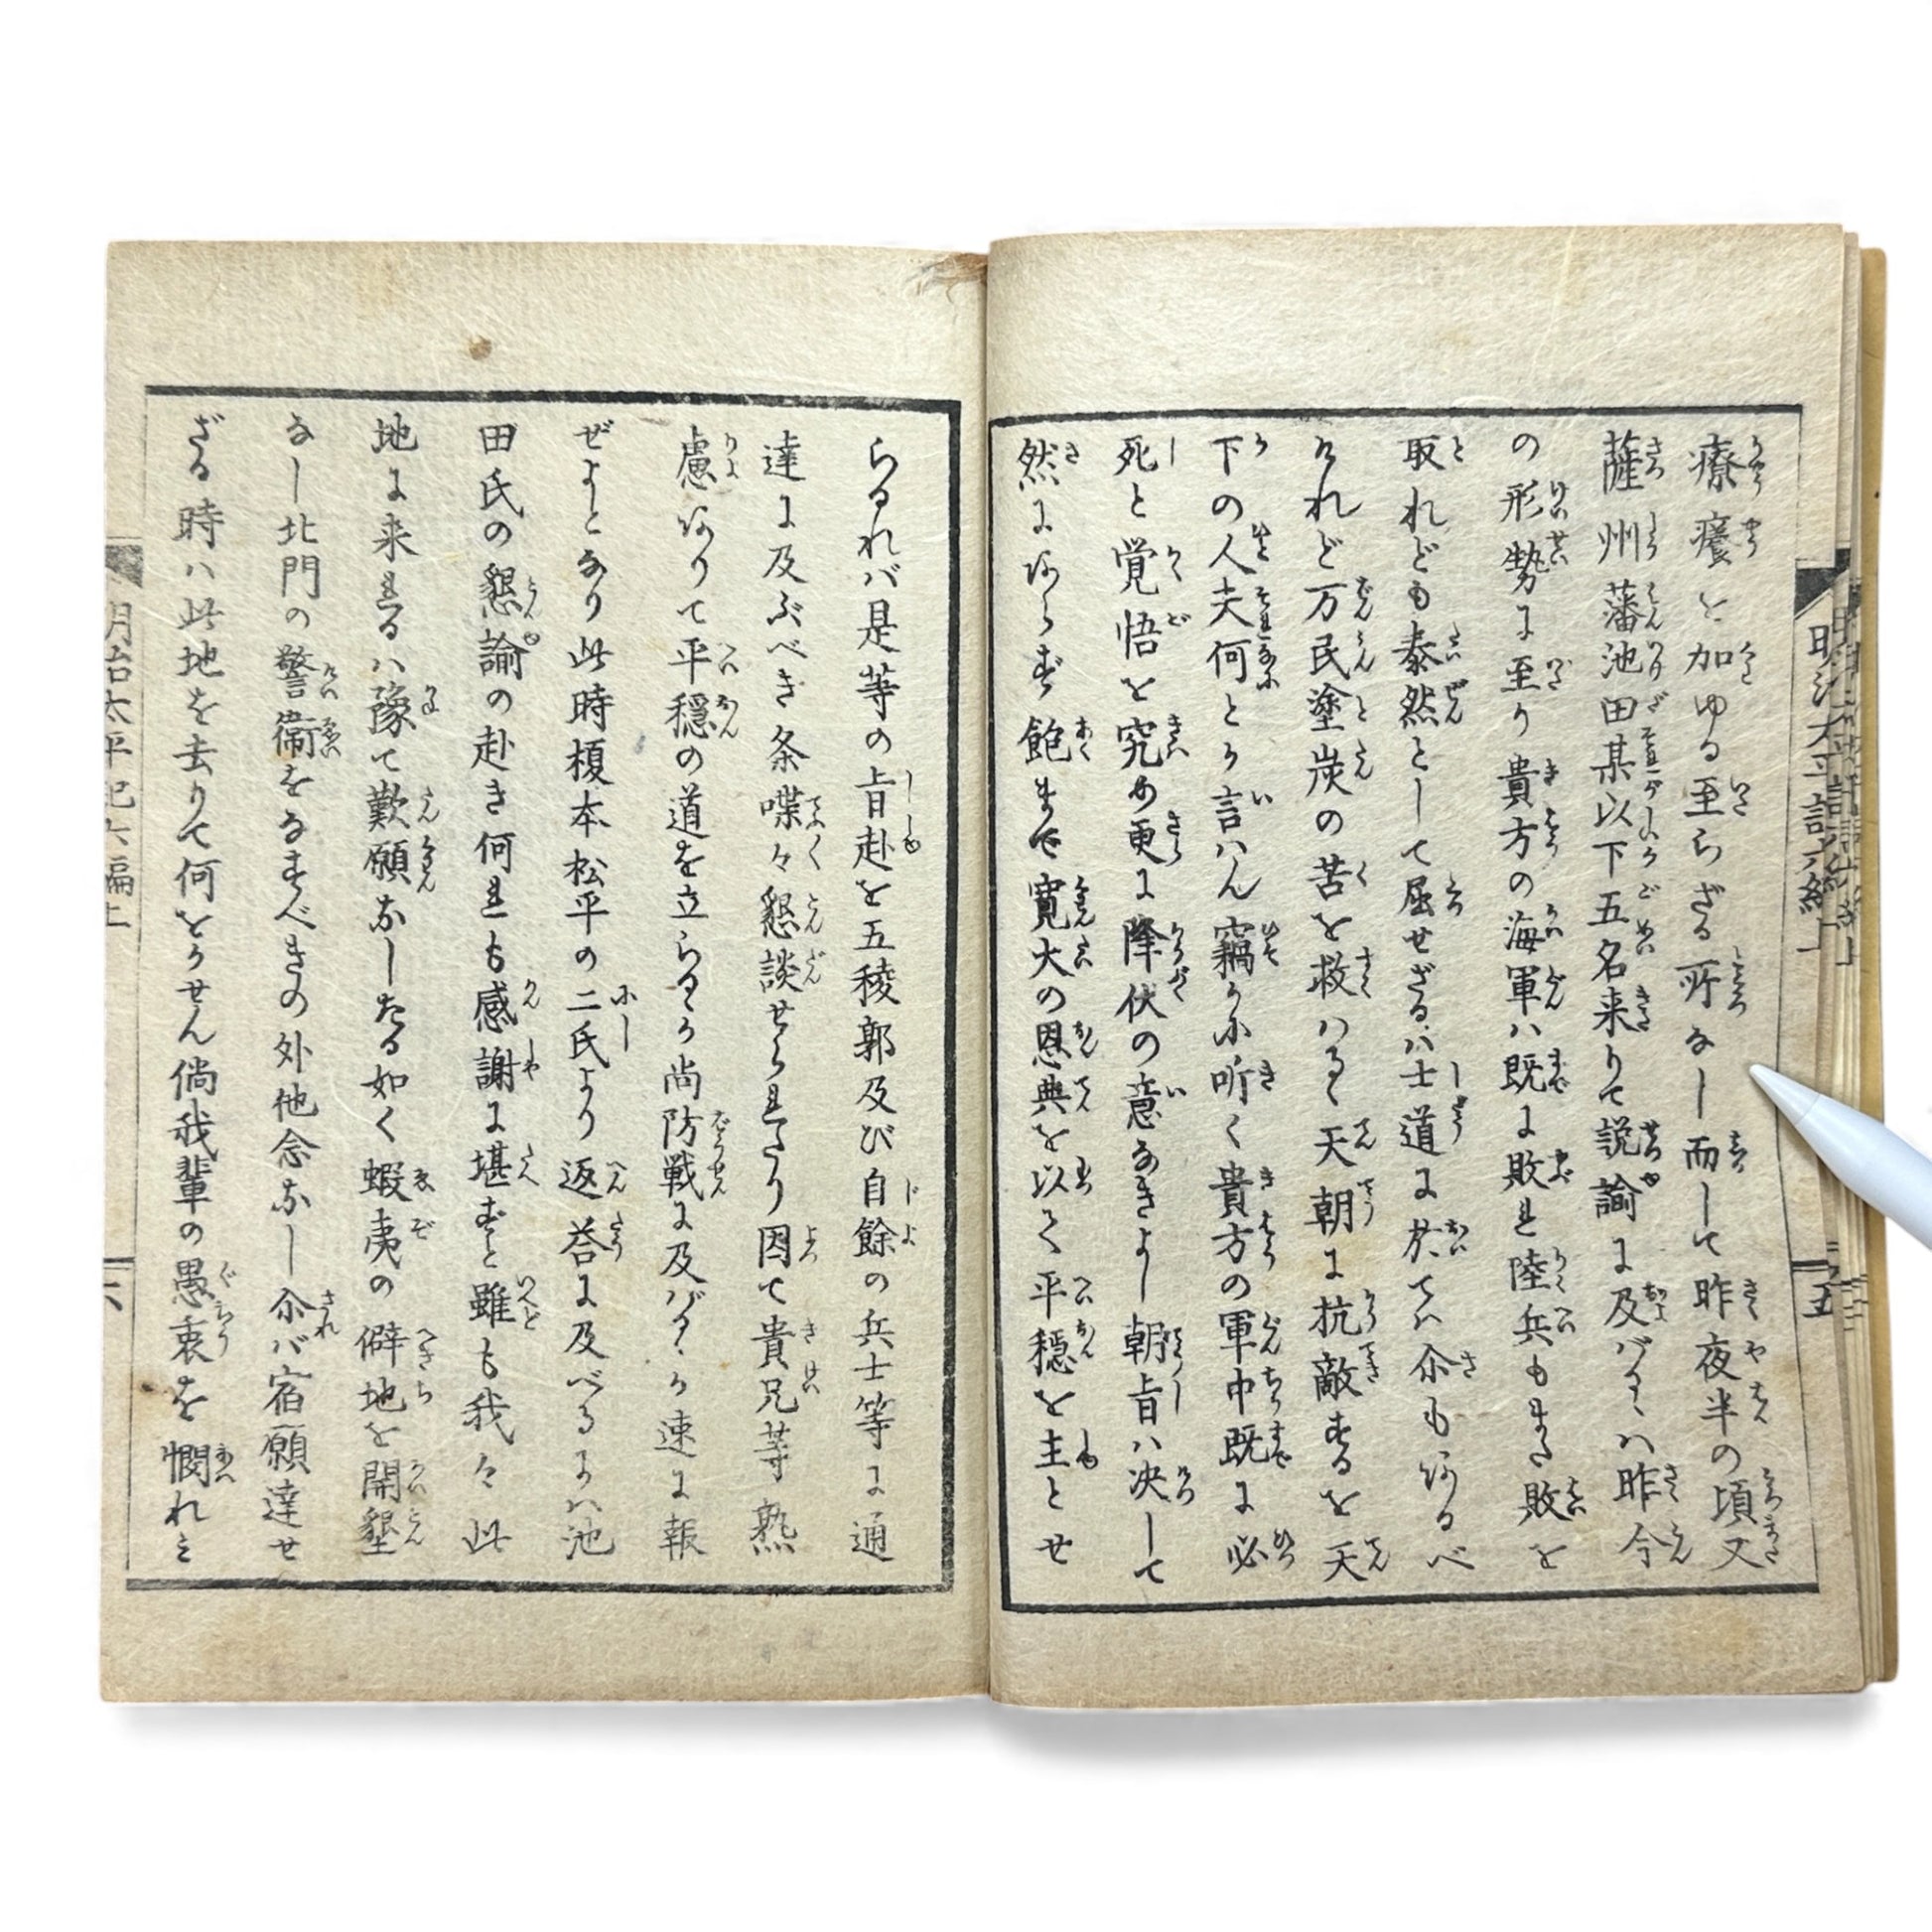 療養を加ゆる至らざる所なし而して昨夜半の頃又
薩州藩池田某以下五名来りて説諭に及バるゝハ昨今
の形勢に至り貴方の海軍ハ既に敗れ陸兵もまた敗を
取れども泰然として屈せざるハ士道に於てハ尒も有るべ
けれど万民塗炭の苦を救ハるゝ天朝に抗敵するを天
下の人夫何とか言ハん竊かに听く貴方の軍中既に必
死と覚悟を究め更に降伏の意なきよし朝旨ハ决して
然にあらず飽まで寛大の恩典を以て平穏を主とせ
らるれバ是等の旨趣を五稜郭及び自餘の兵士等に通
達に及ぶべき条喋々懇談せられたり因て貴兄等熟
慮ありて平穏の道を立らるゝか尚防戦に及バるゝか速に報
ぜよとなり此時榎本松平の二氏より返荅に及べるよハ池
田氏の懇諭の赴き何れも感謝に堪ずと雖も我々此
地に来れるハ豫て歎願なしたる如く蝦夷の僻地を開墾
なし北門の警衛をなすべきの外他念なし尒バ宿願達せ
ざる時ハ此地を去りて何をかせん倘我輩の愚衷を憫れミ
明治太平記六編上
五
明治太平記六編上
六